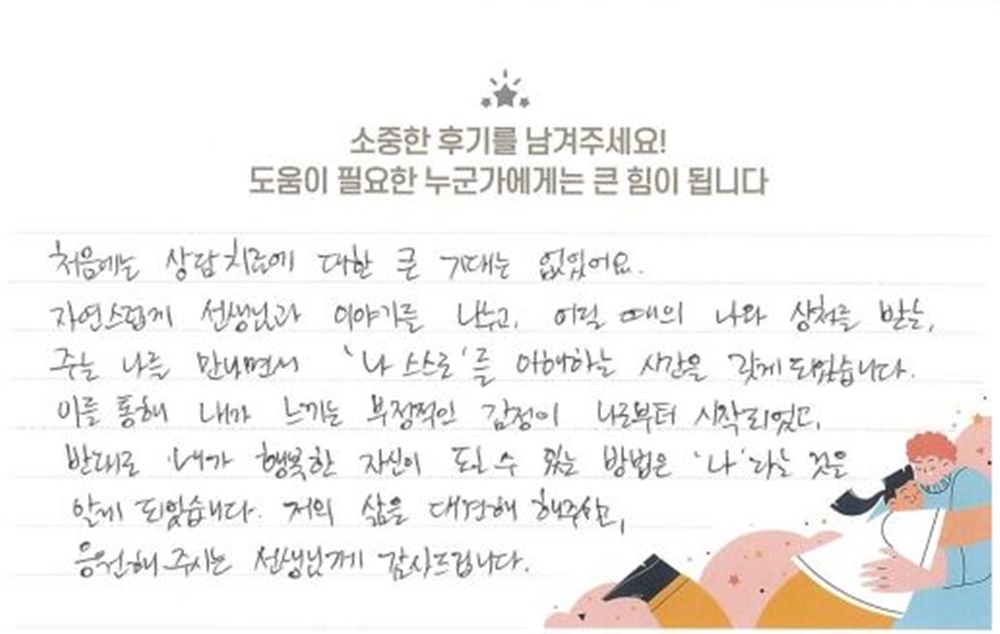 소중한 후기를 남겨주세요!
도움이 필요한 누군가에게는 큰 힘이 됩니다
처음에는 상담치료에 대한 큰 기대는 없었어요.
자연스럽게 선생님과 이야기를 나누고, 어릴 때의 나와 상처를 받는,
주는 나를 만나면서 '나 스스로'를 이해하는 시간을 갖게 되었습니다.
이를 통해 내가 느끼는 부정적인 감정이 나로부터 시작되었고,
반대로 내가 행복한 자신이 될 수 있는 방법은 '나'라는 것을
알게 되었습니다. 저의 삶을 대견해 해주시고,
응원해 주시는 선생님께 감사드립니다.